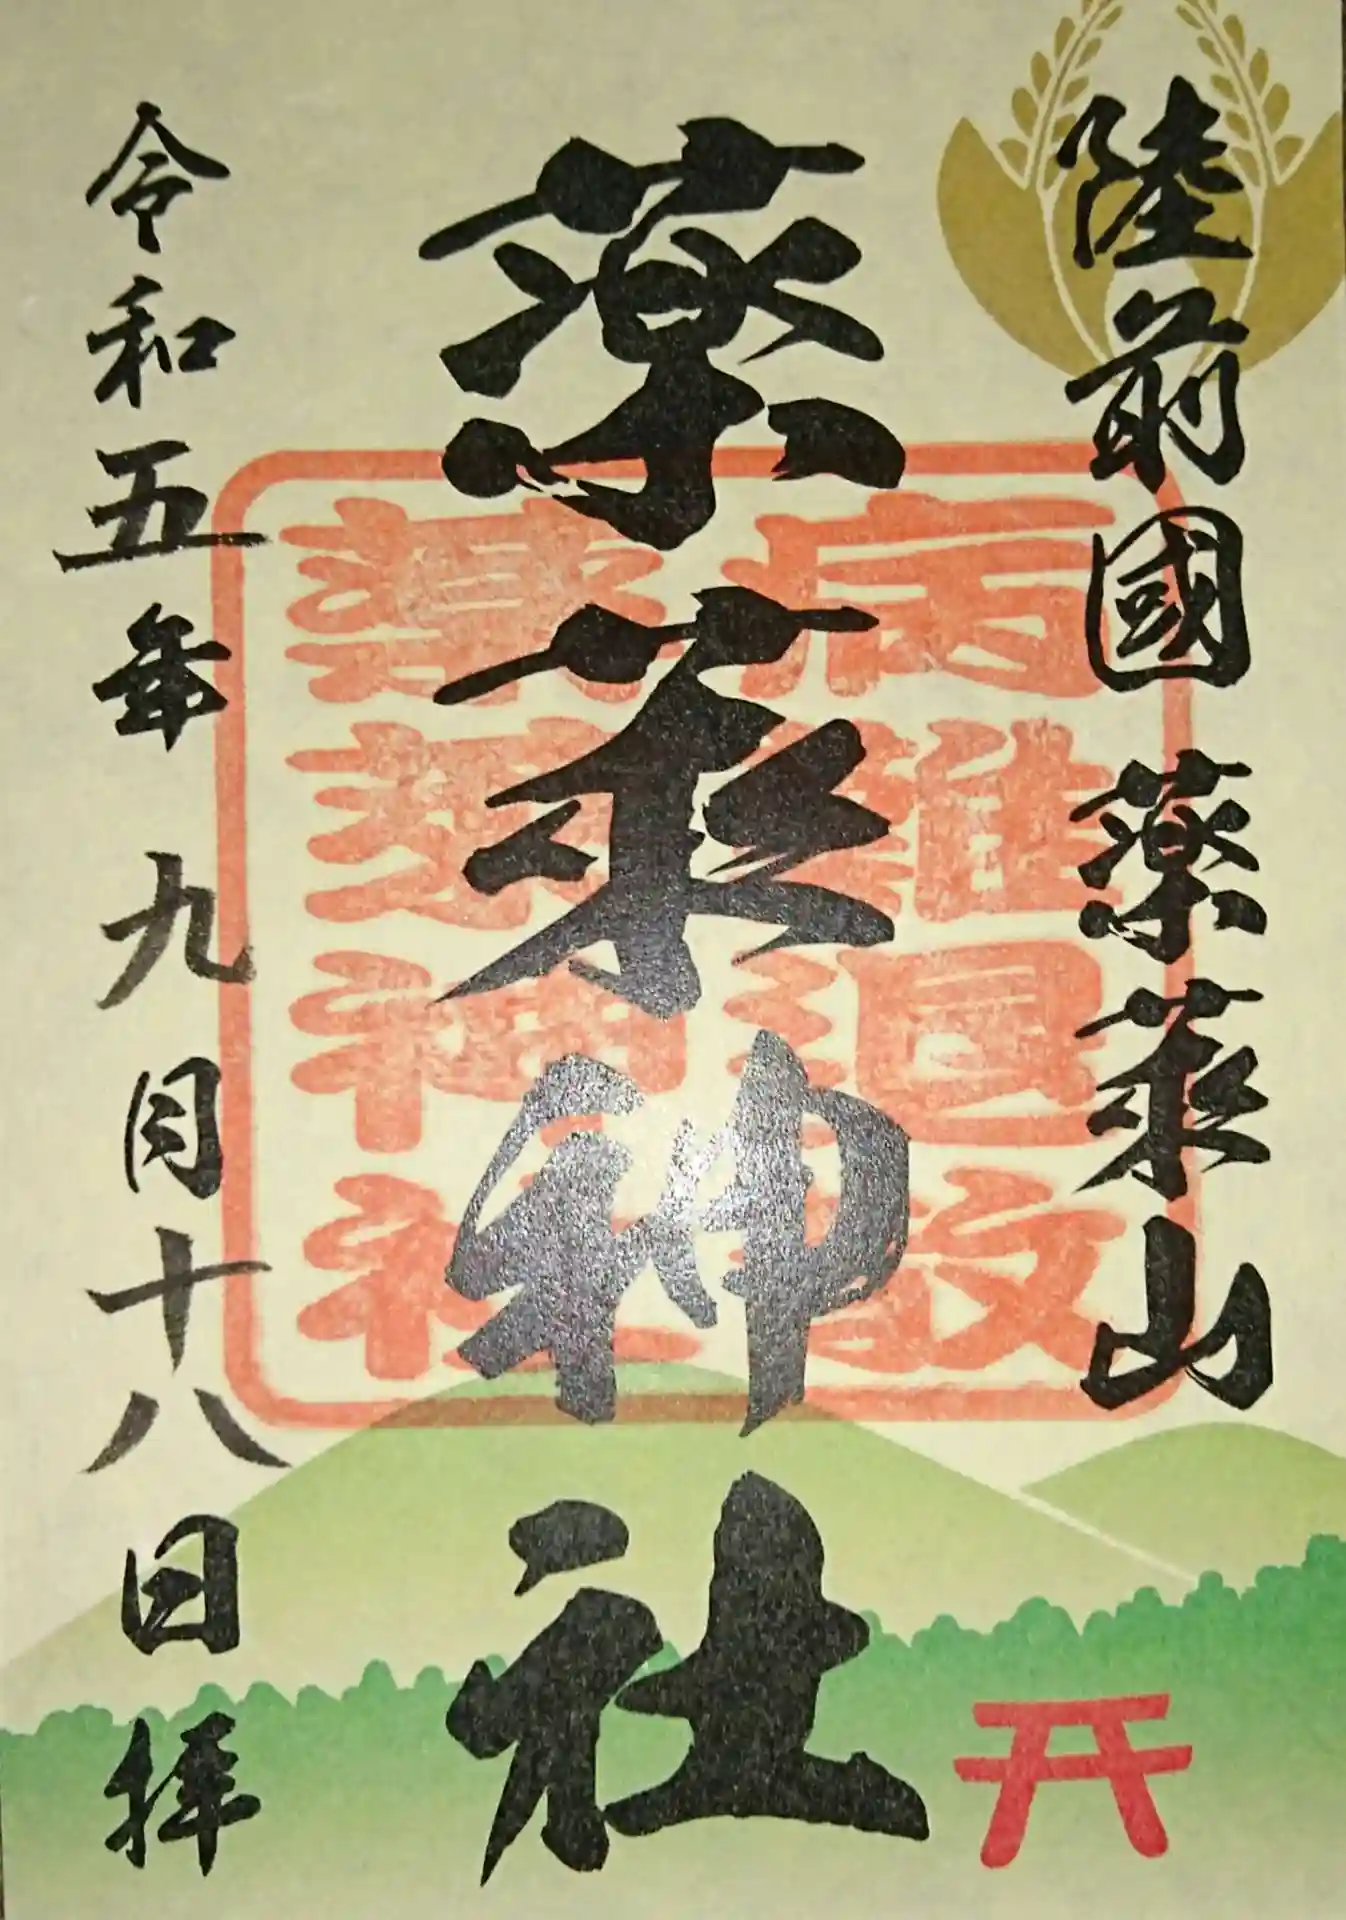 陸前國 薬莱山
薬莱神社
令和五年 九月十八日 拝
病難退散
薬莱神社